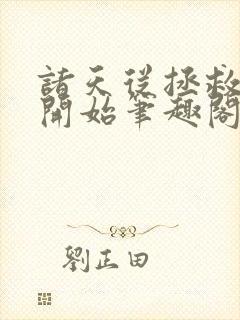 諸天從拯救
開始筆趣閣
劉正田